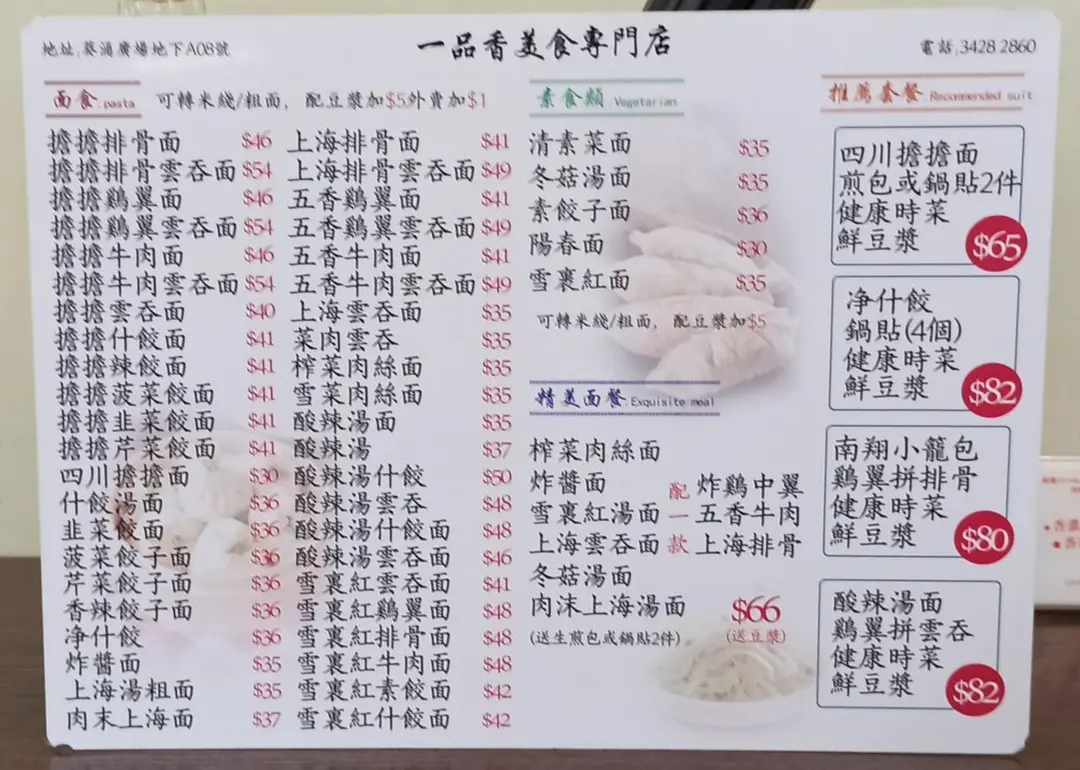 地址,葵涌廣場地下A08號
一品香美食專門店
電話,3428 2860
面食.pasta 可轉米綫/粗面, 配豆漿加$5外賣加$1
擔擔排骨面 $46
擔擔排骨雲吞面 $54
擔擔鷄翼面 $46
擔擔鷄翼雲吞面 $54
擔擔牛肉面 $46
擔擔牛肉雲吞面 $54
擔擔雲吞面 $40
擔擔什餃面 $41
擔擔辣餃面 $41
擔擔菠菜餃面 $41
擔擔韭菜餃面 $41
擔擔芹菜餃面 $41
四川擔擔面 $30
什餃湯面 $36
韭菜餃面 $36
菠菜餃子面 $36
芹菜餃子面 $36
香辣餃子面 $36
净什餃 $36
炸醬面 $35
上海湯粗面 $35
肉末上海面 $37
上海排骨面 $41
上海排骨雲吞面 $49
五香鷄翼面 $41
五香鷄翼雲吞面 $49
五香牛肉面 $41
五香牛肉雲吞面 $49
上海雲吞面 $35
菜肉雲吞 $35
榨菜肉絲面 $35
雪菜肉絲面 $35
酸辣湯面 $35
酸辣湯 $37
酸辣湯什餃 $50
酸辣湯雲吞 $48
酸辣湯什餃面 $48
酸辣湯雲吞面 $46
雪裏紅雲吞面 $41
雪裏紅鷄翼面 $48
雪裏紅排骨面 $48
雪裏紅牛肉面 $48
雪裏紅素餃面 $42
雪裏紅什餃面 $42
素食類.Vegetarian
清素菜面 $35
冬菇湯面 $35
素餃子面 $36
陽春面 $30
雪裏紅面 $35
可轉米綫/粗面, 配豆漿加$5
精美面餐.Exquisite meal
榨菜肉絲面
炸醬面
雪裏紅湯面
上海雲吞面
冬菇湯面
肉沫上海湯面
(送生煎包或鍋貼2件)
配一款
炸鷄中翼
五香牛肉
上海排骨
$66
(送豆漿)
推薦套餐.Recommended suit
四川擔擔面
煎包或鍋貼2件
健康時菜
鮮豆漿
$65
净什餃
鍋貼(4個)
健康時菜
鮮豆漿
$82
南翔小籠包
鷄翼拼排骨
健康時菜
鮮豆漿
$80
酸辣湯面
鷄翼拼雲吞
健康時菜
鮮豆漿
$82